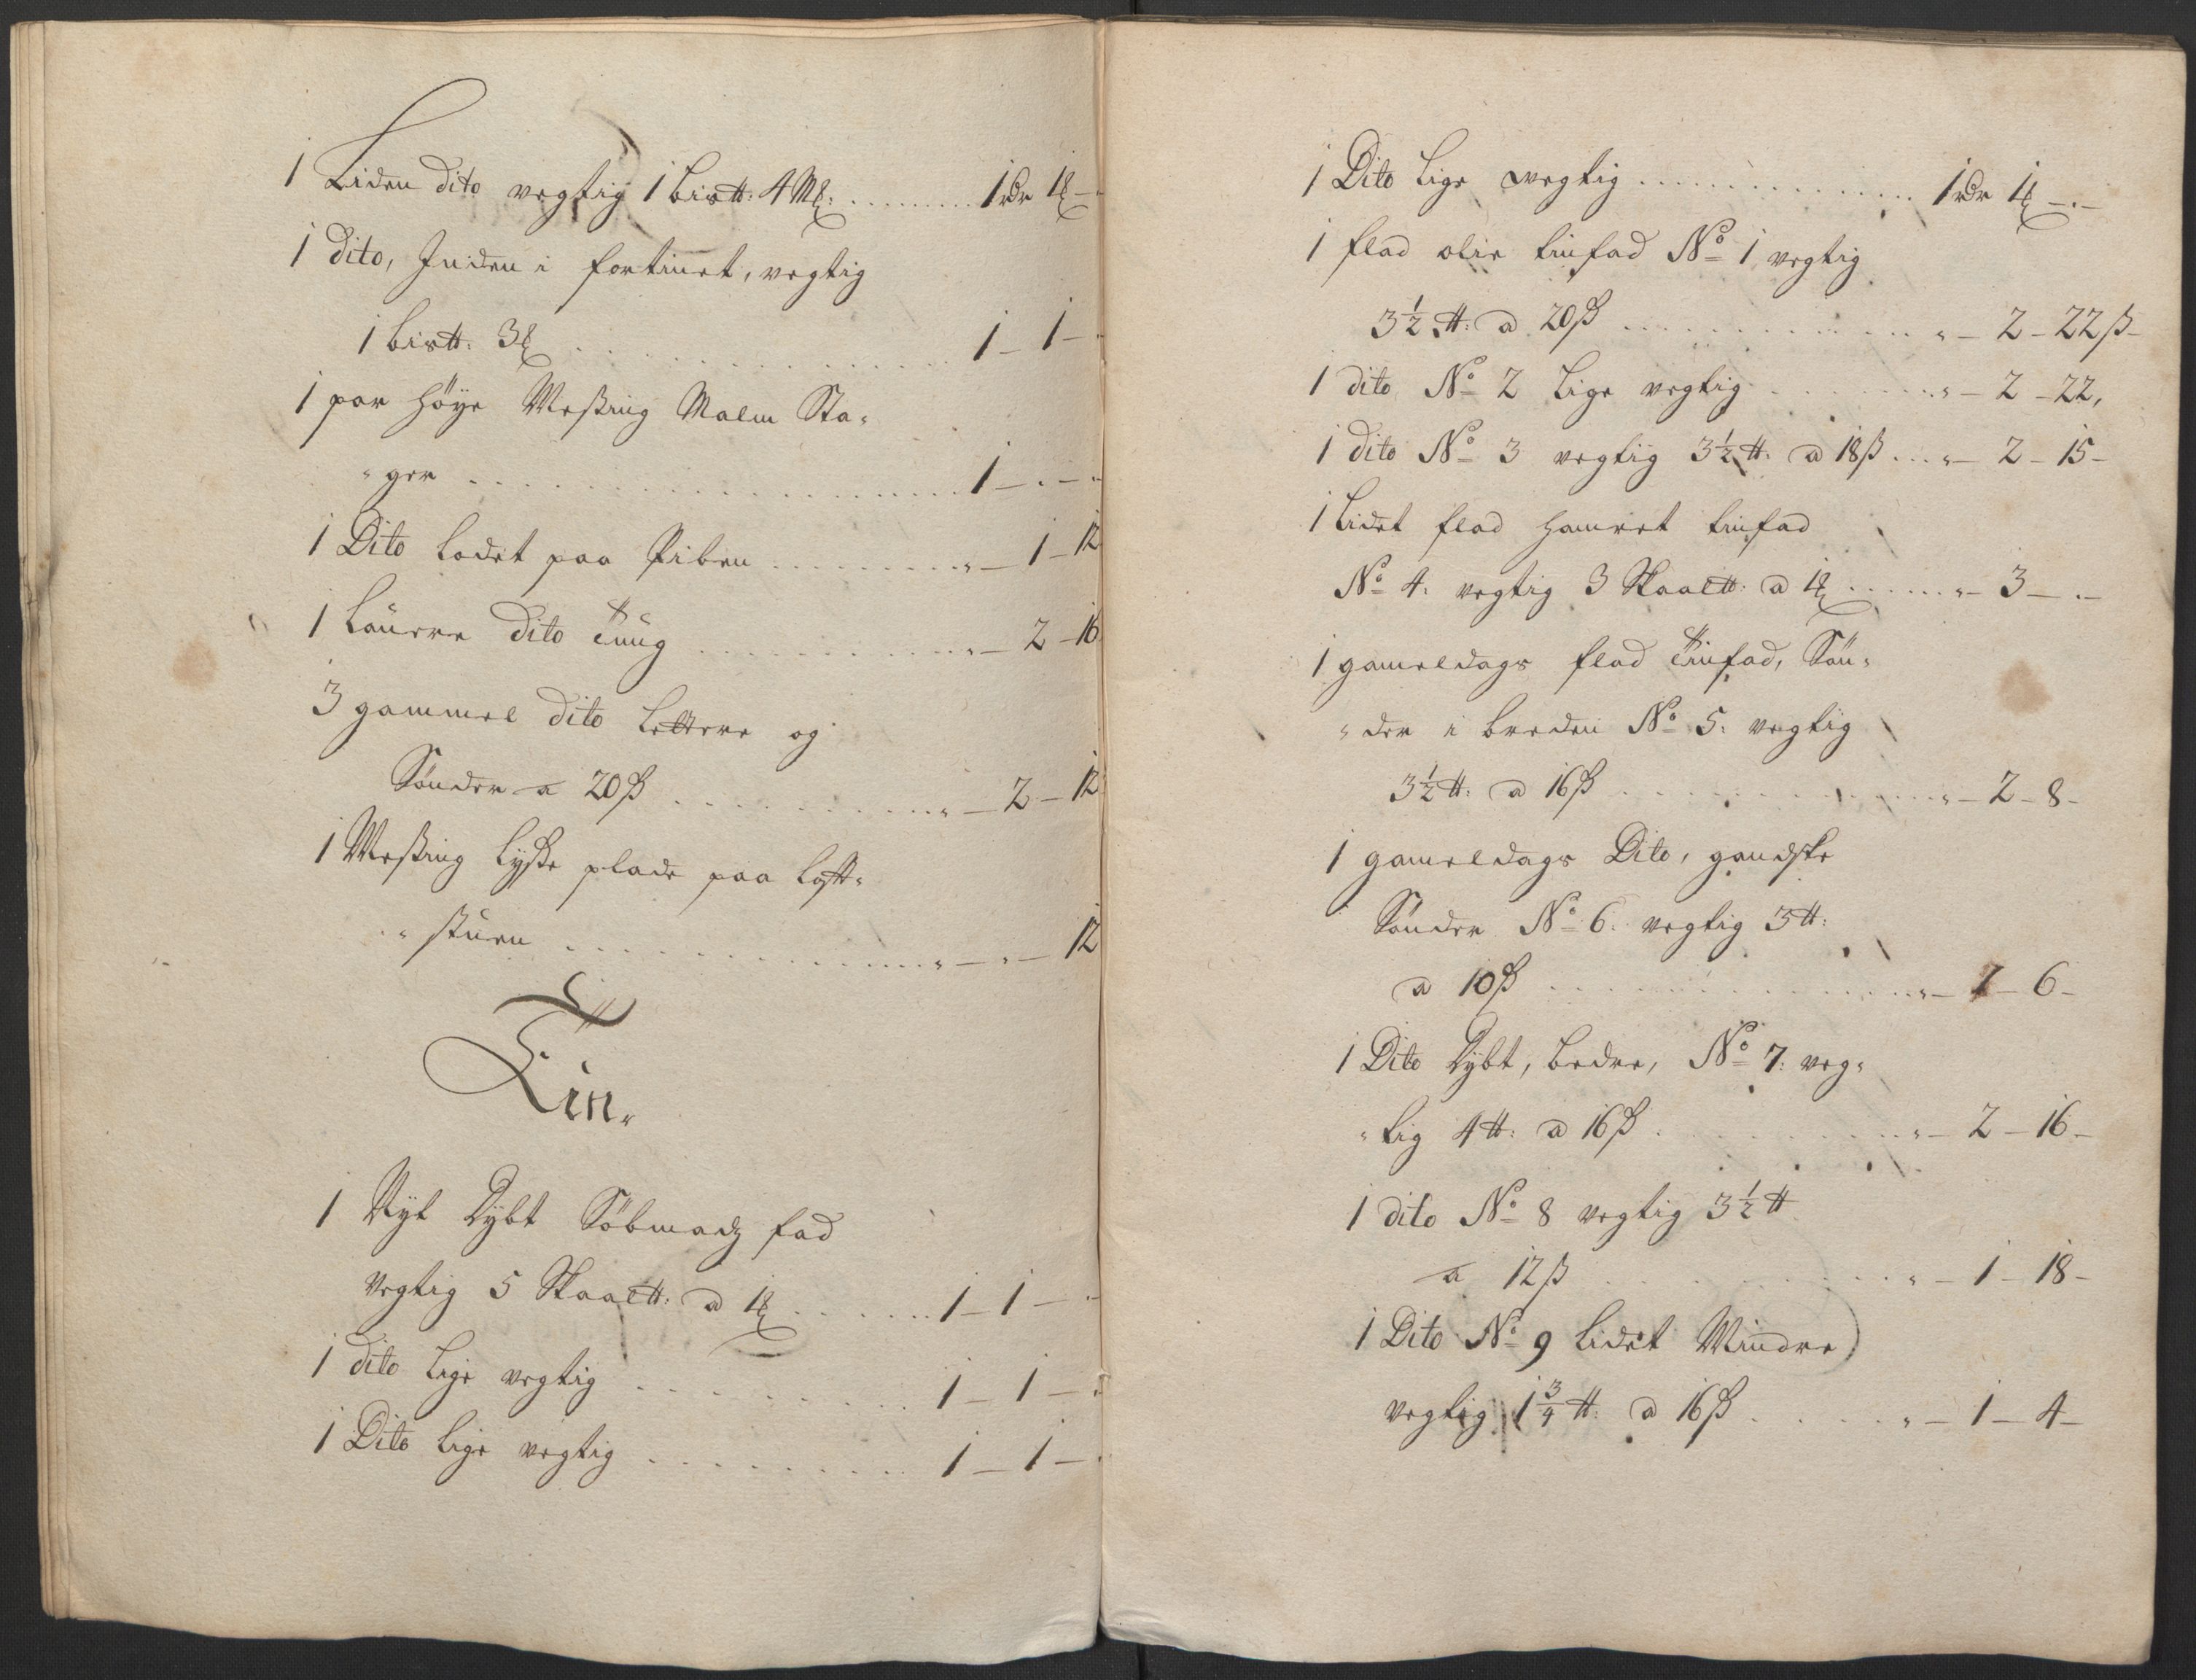 1 Liden dito vegtig 1 bis℔: 4 Mk: ......... 1 rdr 1 ꝳ -
1 dito, Inden i fortinet, vegtig
1 bis℔: 3 ꝳ .......... 1 - 1 -
1 par höye Messing Malm Sta-
"ger .......... 1 - . -
1 Dito Lodet paa Piben .......... " - 1 - 12
1 Laüere Dito Tung .......... " - 2 - 16
3 gammel dito Lettere og
Sönder a 20 ß .......... " - 2 - 12
1 Messing Lysse plade paa Loft-
"stuen .......... " - " - 12
Tin.
1 Nyt Dybt Söbmadz fad
Vegtig 5 Skaal℔: a 1 ꝳ ...... 1 - 1 -
1 dito Lige vegtig .......... 1 - 1 -
1 Dito Lige vegtig .......... 1 - 1 -
1 Dito Lige vegtig .......... 1 rdr 1 ꝳ - . -
1 flad olie tinfad No 1 vegtig
3½ ℔: a 20 ß .......... " - 2 - 22 ß -
1 dito No 2 Lige vegtig .......... " - 2 - 22,
1 dito No 3 vegtig 3½ ℔: a 18 ß ... " - 2 - 15 -
1 Lidet flad hamret tinfad
No 4: vegtig 3 Skaal℔: a 1 ꝳ ...... " - 3 - . -
1 gameldags flad Tinfad, Sön-
"der i breden No 5: vegtig
3½ ℔: a 16 ß .......... " - 2 - 8 -
1 gameldags Dito, gandske
Sönder No 6: vegtig 3 ℔:
a 10 ß .......... " - 1 - 6 -
1 Dito Dybt, bedre, No 7: veg-
"tig 4 ℔: a 16 ß .......... " - 2 - 16 -
1 dito No 8 vegtig 3½ ℔
a 12 ß .......... " - 1 - 18 -
1 Dito No 9 Lidet Mindre
vegtig 1¾ ℔: a 16 ß .......... " - 1 - 4 -